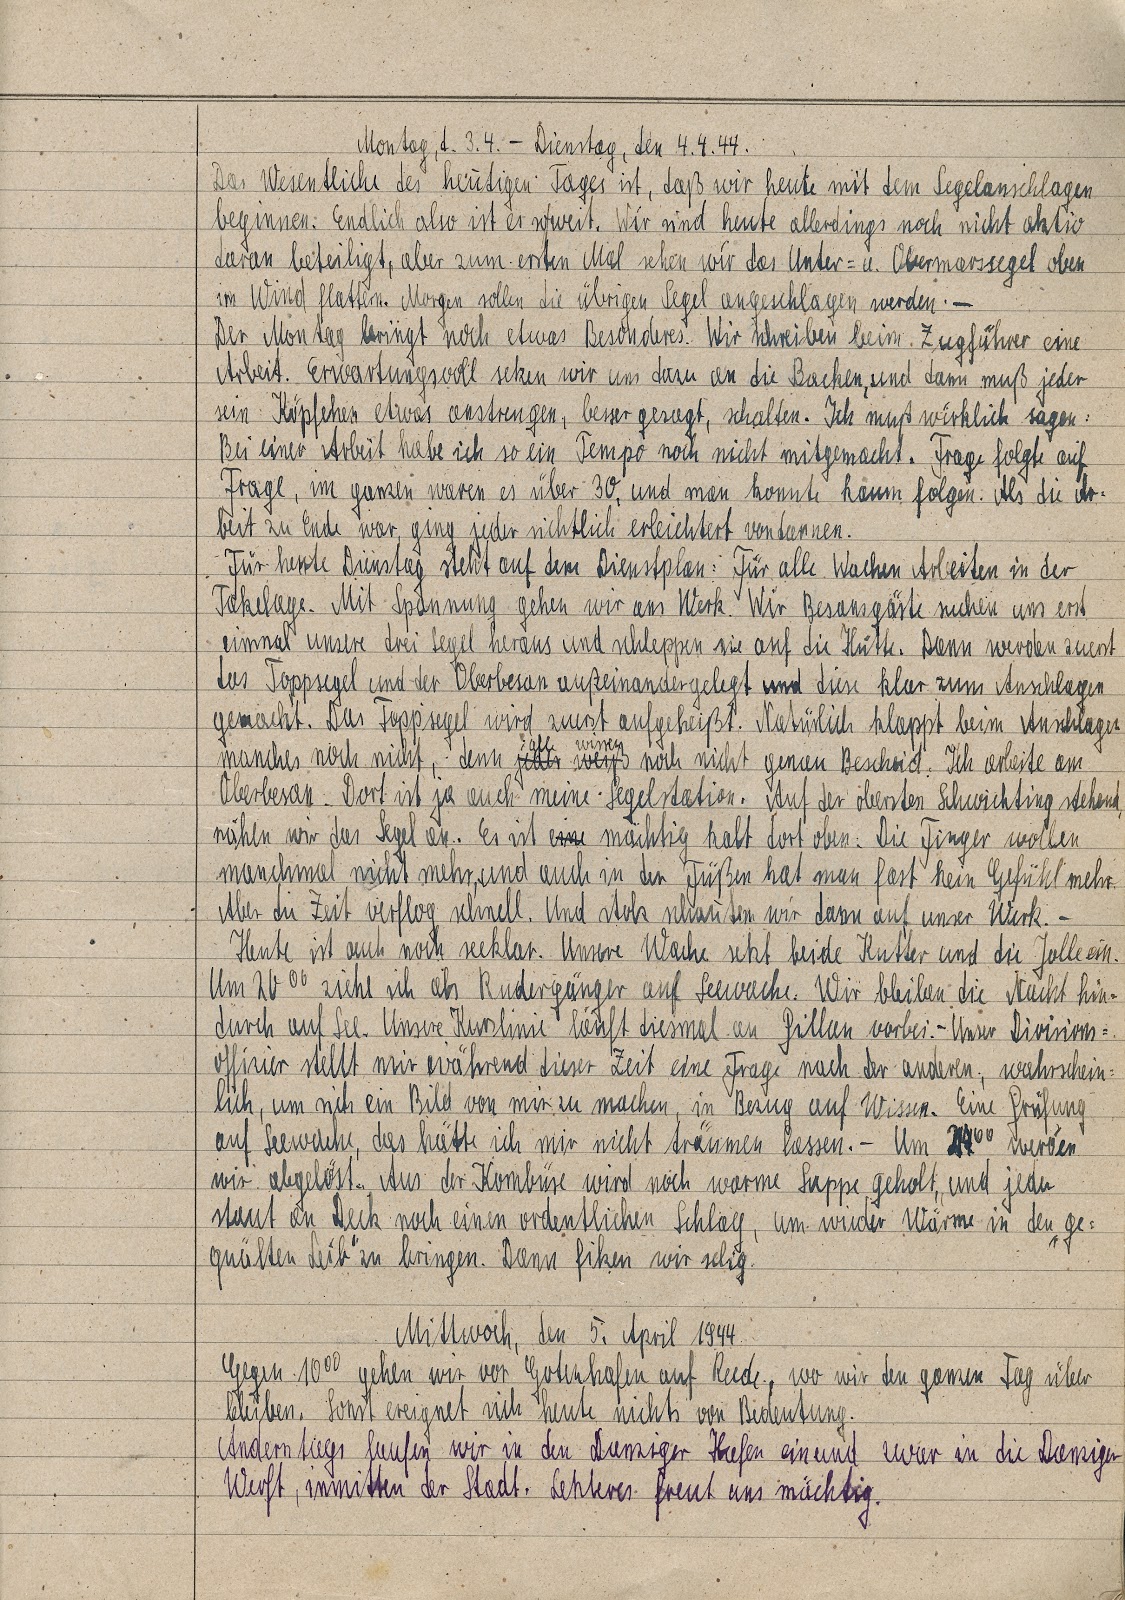 Montag, d. 3.4. – Dienstag, den 4.4.44.
Das Wesentliche des heutigen Tages ist, daß wir heute mit dem Segelanschlagen
beginnen. Endlich also ist es soweit. Wir sind heute allerdings noch nicht aktiv
daran beteiligt, aber zum ersten Mal sehen wir das Unter= u. Obermarssegel oben
im Wind flattern. Morgen sollen die übrigen Segel angeschlagen werden. –
Der Montag bringt noch etwas Besonderes. Wir schreiben beim Zugführer eine
Arbeit. Erwartungsvoll setzen wir uns dazu an die Backen, und dann muß jeder
sein Köpfchen etwas anstrengen, besser gesagt, schalten. Ich muß wirklich sagen:
Bei einer Arbeit habe ich so ein Tempo noch nicht mitgemacht. Frage folgte auf
Frage, im ganzen waren es über 30, und man konnte kaum folgen. Als die Ar-
beit zu Ende war, ging jeder sichtlich erleichtert vondannen.
Für heute Dienstag steht auf dem Dienstplan: Für alle Wachen Arbeiten in der
Takelage. Mit Spannung gehen wir ans Werk. Wir Besansgäste suchen uns erst
einmal unsere drei Segel heraus und schleppen sie auf die Hütte. Dann werden zuerst
das Toppsegel und der Oberbesan außeinandergelegt und diese klar zum Anschlagen
gemacht. Das Toppsegel wird zuerst aufgeheißt. Natürlich klappt beim Anschlagen
manches noch nicht, denn jeder alle weiß wissen noch nicht genau Bescheid. Ich arbeite am
Oberbesan. Dort ist ja auch meine Segelstation. Auf der obersten Schwichting stehend,
nähen wir das Segel an. Es ist eine mächtig kalt dort oben. Die Finger wollen
manchmal nicht mehr, und auch in den Füßen hat man fast kein Gefühl mehr.
Aber die Zeit verflog schnell. Und stolz schauten wir dann auf unser Werk. –
Heute ist auch noch seeklar. Unsere Wache setzt beide Kutter und die Jolle ein.
Um 20⁰⁰ ziehe ich als Rudergänger auf Seewache. Wir bleiben die Nacht hin=
durch auf See. Unsere Kurslinie läuft diesmal an Pillau vorbei. – Unser Divisions=
offizier stellt mir während dieser Zeit eine Frage nach der anderen, wahrschein=
lich, um sich ein Bild von mir zu machen, in Bezug auf Wissen. Eine Prüfung
auf Seewache, das hätte ich mir nicht träumen lassen. – Um 24⁰⁰ werden
wir abgelöst. Aus der Kombüse wird noch warme Suppe geholt, und jeder
staut an Deck noch einen ordentlichen Schlag, um wieder Wärme in den „ge=
quälten Leib" zu bringen. Dann fiken wir selig.
Mittwoch, den 5. April 1944
Gegen 10⁰⁰ gehen wir vor Gotenhafen auf Reede, wo wir den ganzen Tag über
bleiben. Sonst ereignet sich heute nichts von Bedeutung.
Anderntags laufen wir in den Danziger Hafen ein und zwar in die Danziger
Werft, inmitten der Stadt. Letzteres freut uns mächtig.